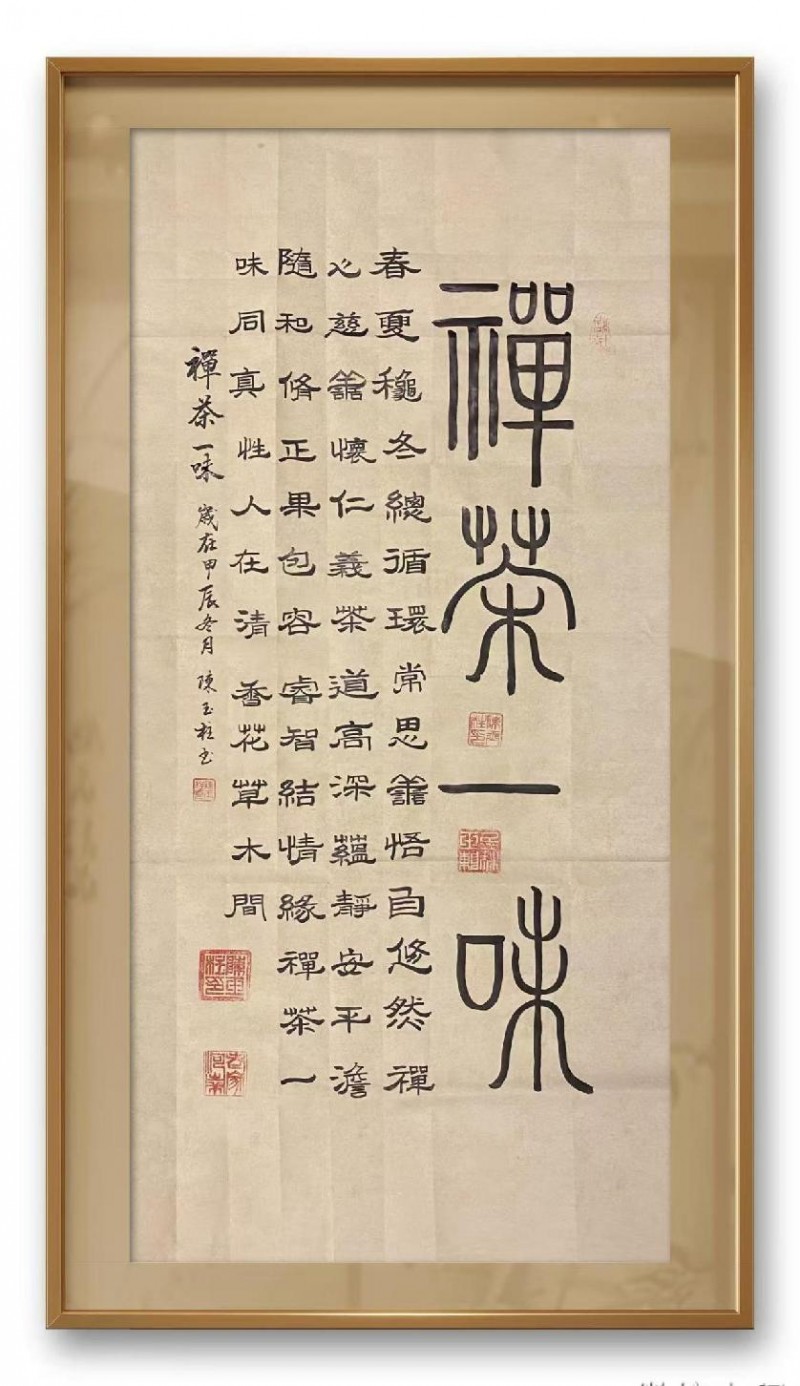 禪茶一味
春夏穐冬總循環常思譱悟自悠然禪
心慈譱懷仁義茶道高深蘊靜安平澹
隨和脩正果包容睿智結情緣禪茶一
味同真性人在清香花草木間
禪茶一味 歲在甲辰冬月 陳玉柱書